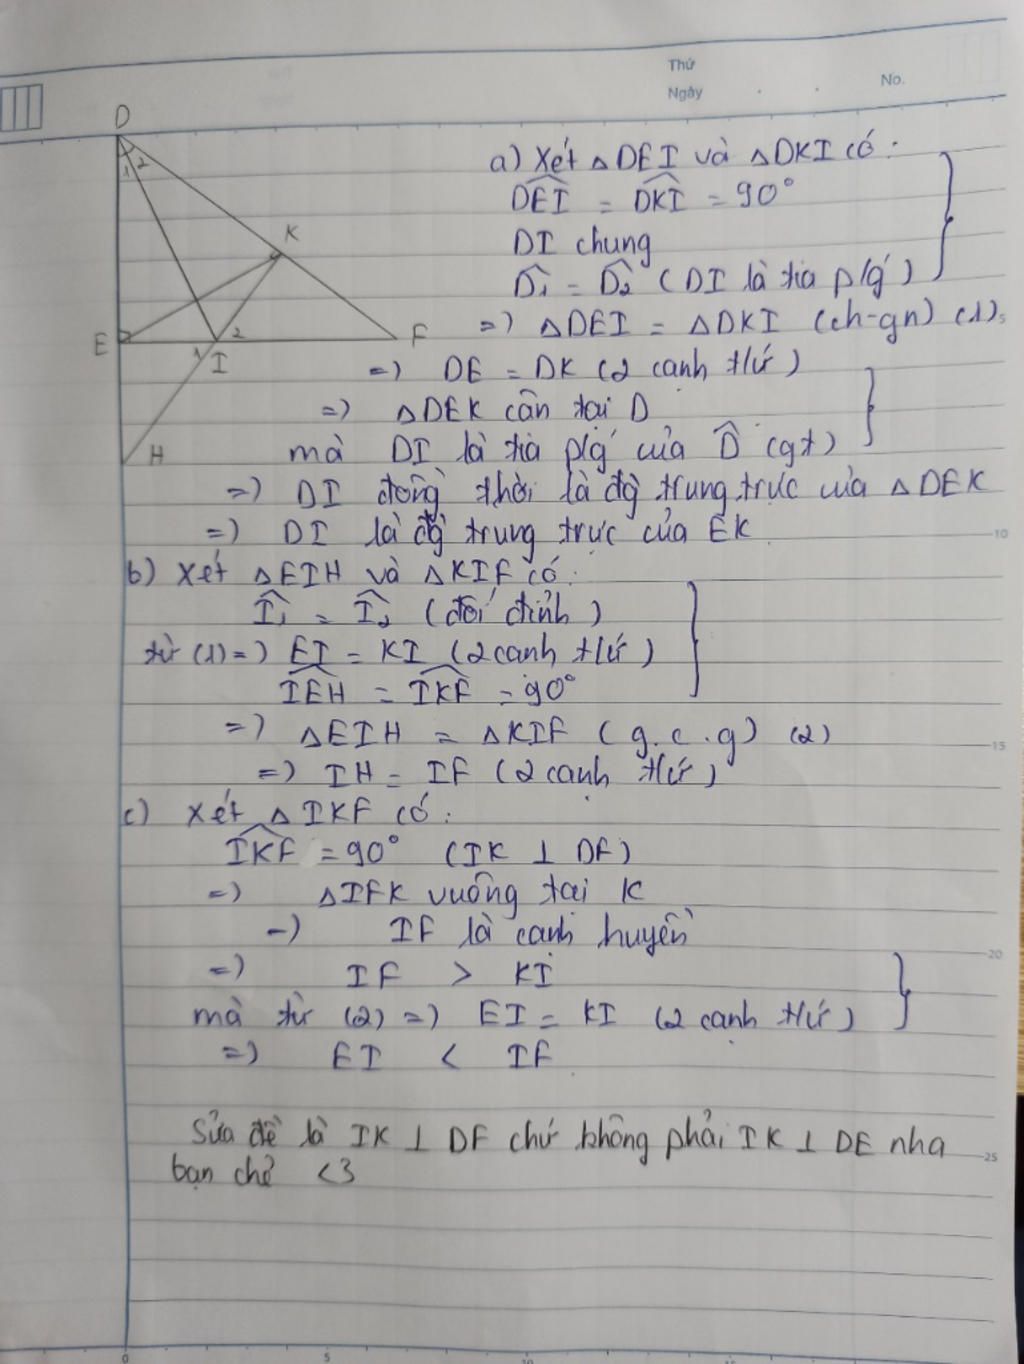 Thứ
Ngày
No.
D
1 2
K
E
2
F
1
I
H
a) Xét △DEI và △DKI có:
DEI = DKI = 90°
DI chung
D₁ = D₂ (DI là tia p/g)
=) △DEI = △DKI (ch-gn) (1)
=) DE = DK (2 cạnh t/ứ)
=) △DEK cân tại D
mà DI là tia p/g của D (gt)
=) DI đồng thời là đg trung trực của △DEK
=) DI là đg trung trực của EK
b) Xét △EIH và △KIF có:
I₁ = I₂ (đối đỉnh)
từ (1) =) EI = KI (2 cạnh t/ứ)
IEH = IKF = 90°
=) △EIH = △KIF (g.c.g) (2)
=) IH = IF (2 cạnh t/ứ)
c) Xét △IKF có:
IKF = 90° (IK ⊥ DF)
=) △IFK vuông tại K
-) IF là cạnh huyền
=) IF > KI
mà từ (2) =) EI = KI (2 cạnh t/ứ)
=) EI < IF
Sửa đề là IK ⊥ DF chứ không phải IK ⊥ DE nha
bạn chẻ <3
5
10
15
20
25
0
5
10